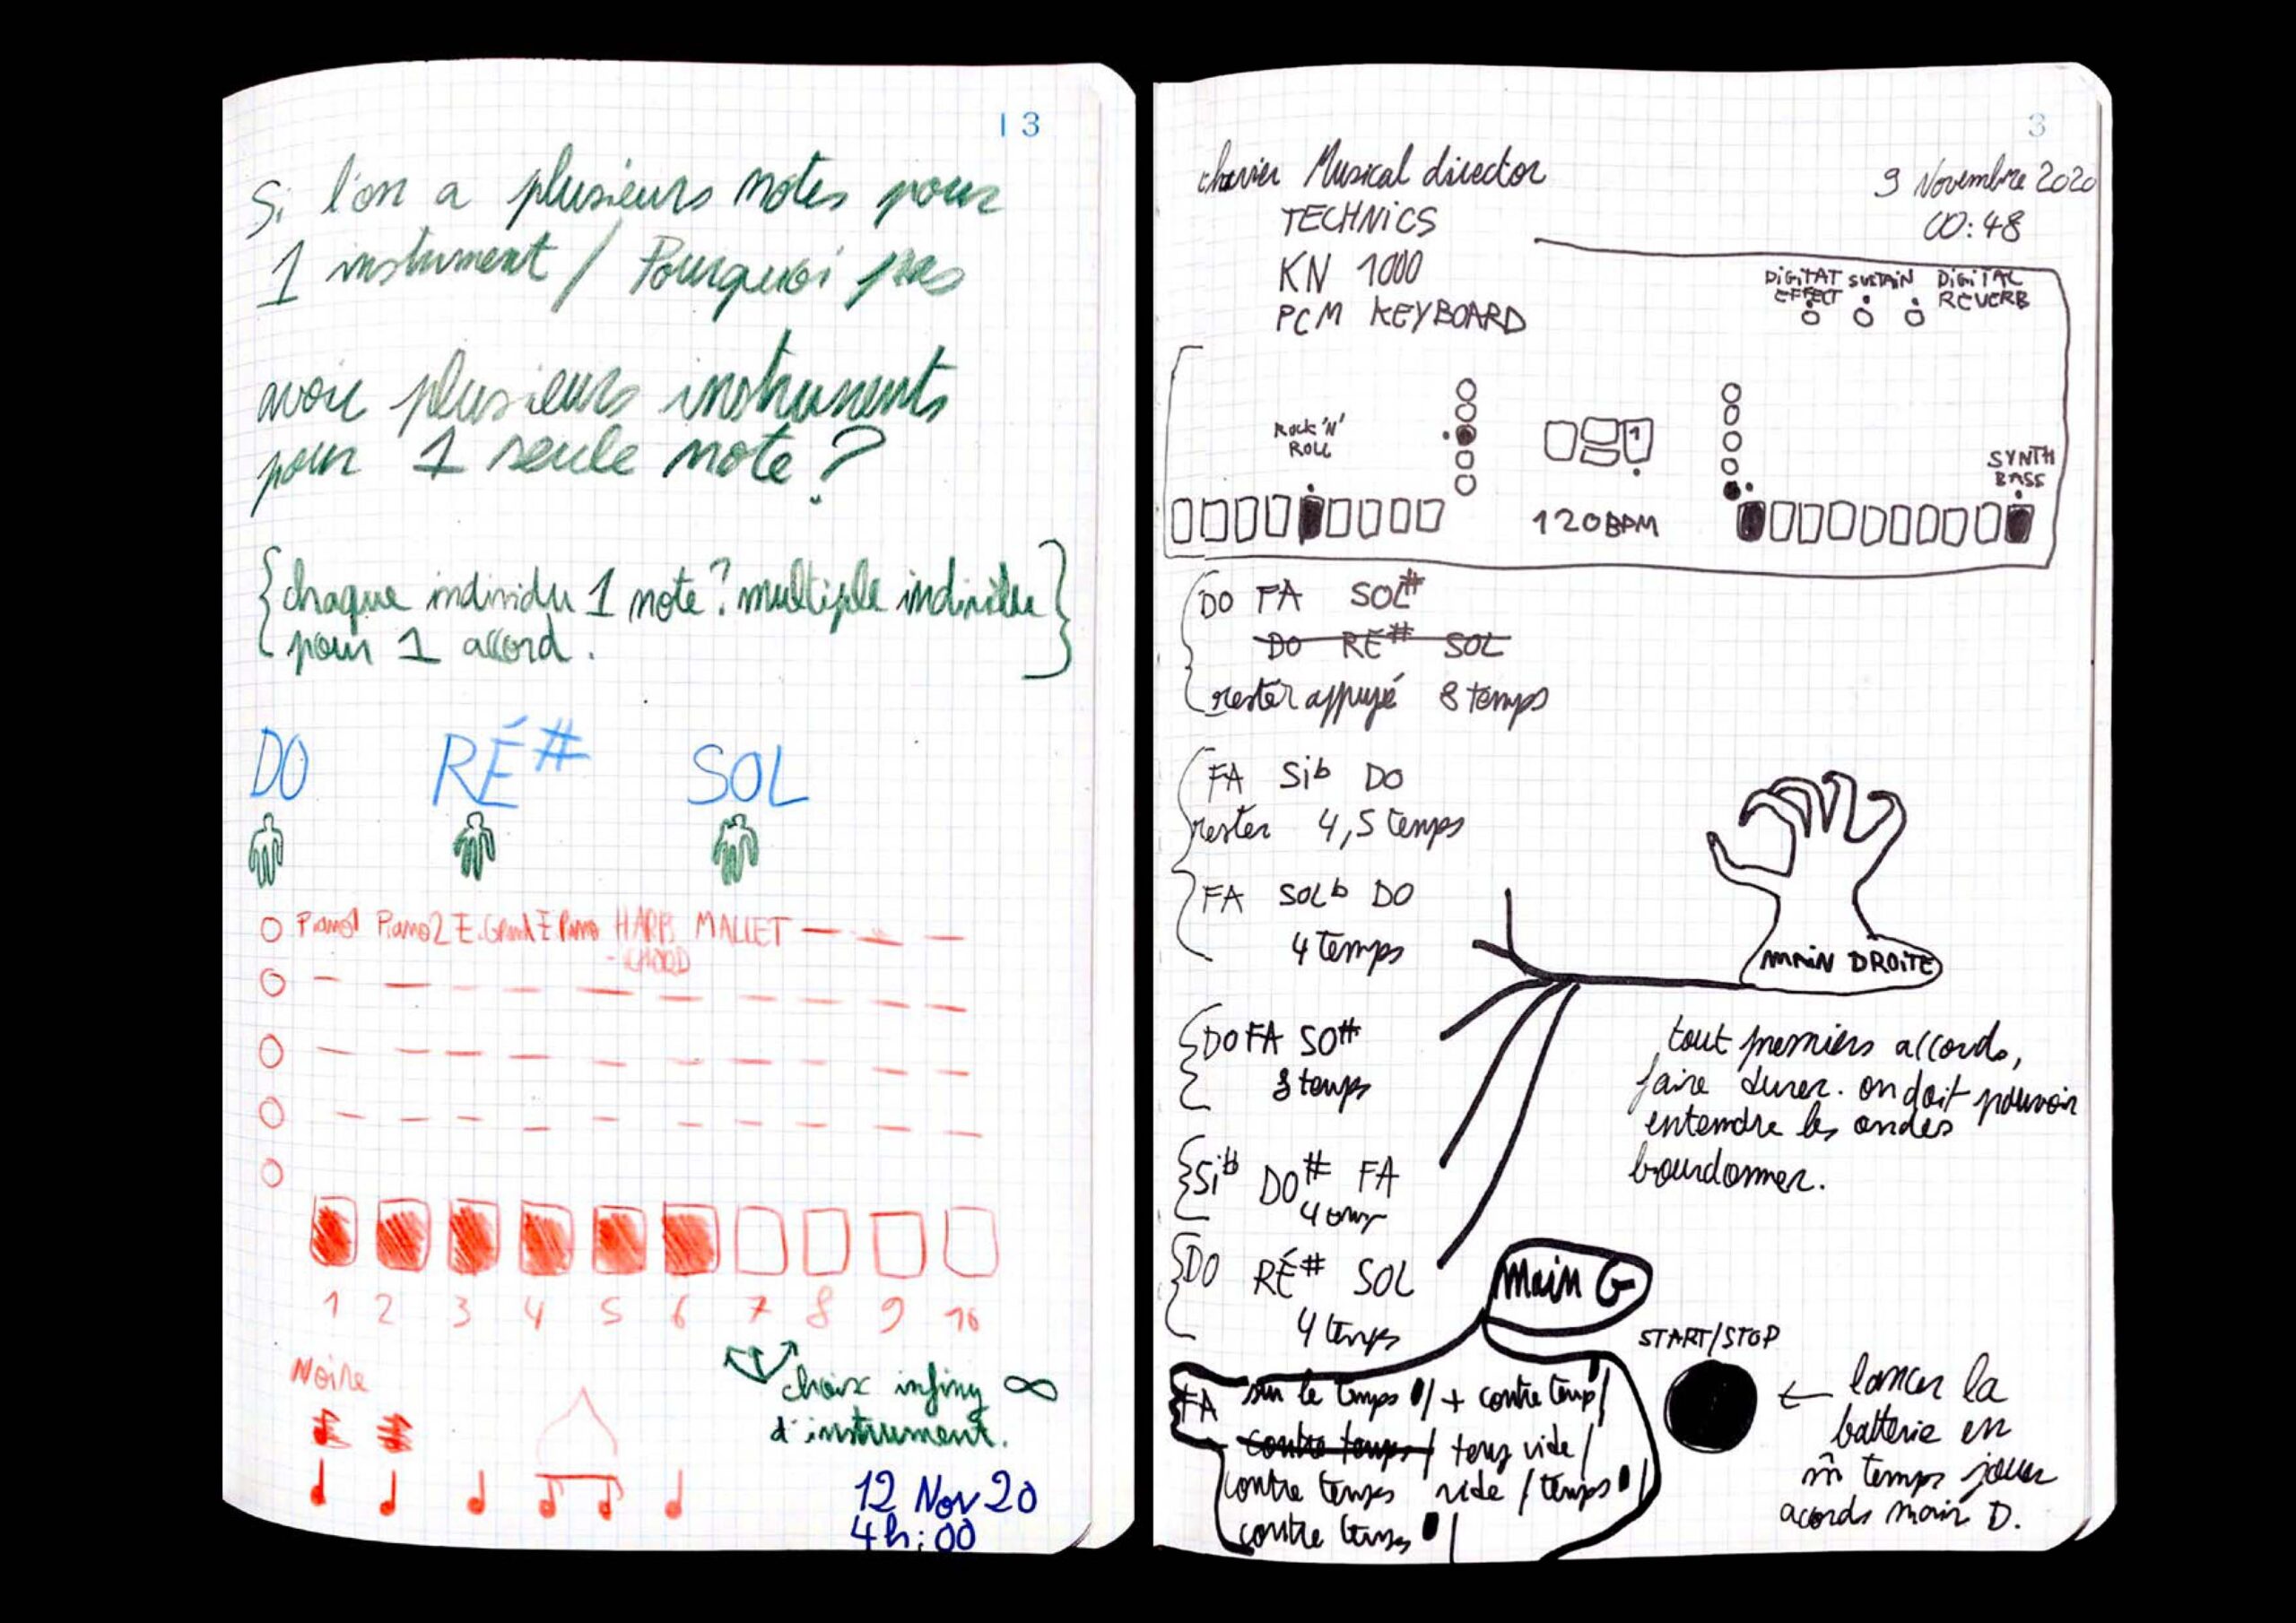 13
Si l'on a plusieurs notes pour
1 instrument / Pourquoi pas
avoir plusieurs instruments
pour 1 seule note ?
{chaque individu 1 note ? multiple individu}
pour 1 accord.
DO RÉ# SOL
Piano1 Piano2 E.Grand E.Piano HARPSI MALLET
-CHORD
1 2 3 4 5 6 7 8 9 10
Noire
choix infiny ∞
d'instrument.
12 Nov 20
4h:00
3
Musical director
9 Novembre 2020
TECHNICS
00:48
KN 1000
PCM KEYBOARD
DIGITAT SUSTAIN DIGITAL
EFFECT REVERB
ROCK 'N'
ROLL
1
SYNTH
BASS
120 BPM
DO FA SOL#
DO RÉ# SOL
rester appuyé 8 temps
FA Sib DO
rester 4,5 temps
FA SOLb DO
4 temps
MAIN DROITE
DO FA SO#
8 temps
tout premiers accords,
faire durer. on doit pouvoir
entendre les ondes
bourdonner.
DO# FA
DO RÉ# SOL
4 temps
Main G
START/STOP
FA sur le temps / + contre temp /
contre temps / temps vide /
contre temps vide / temps /
contre temps
← lancer la
batterie en
m̂ temps jouer
acords main D.